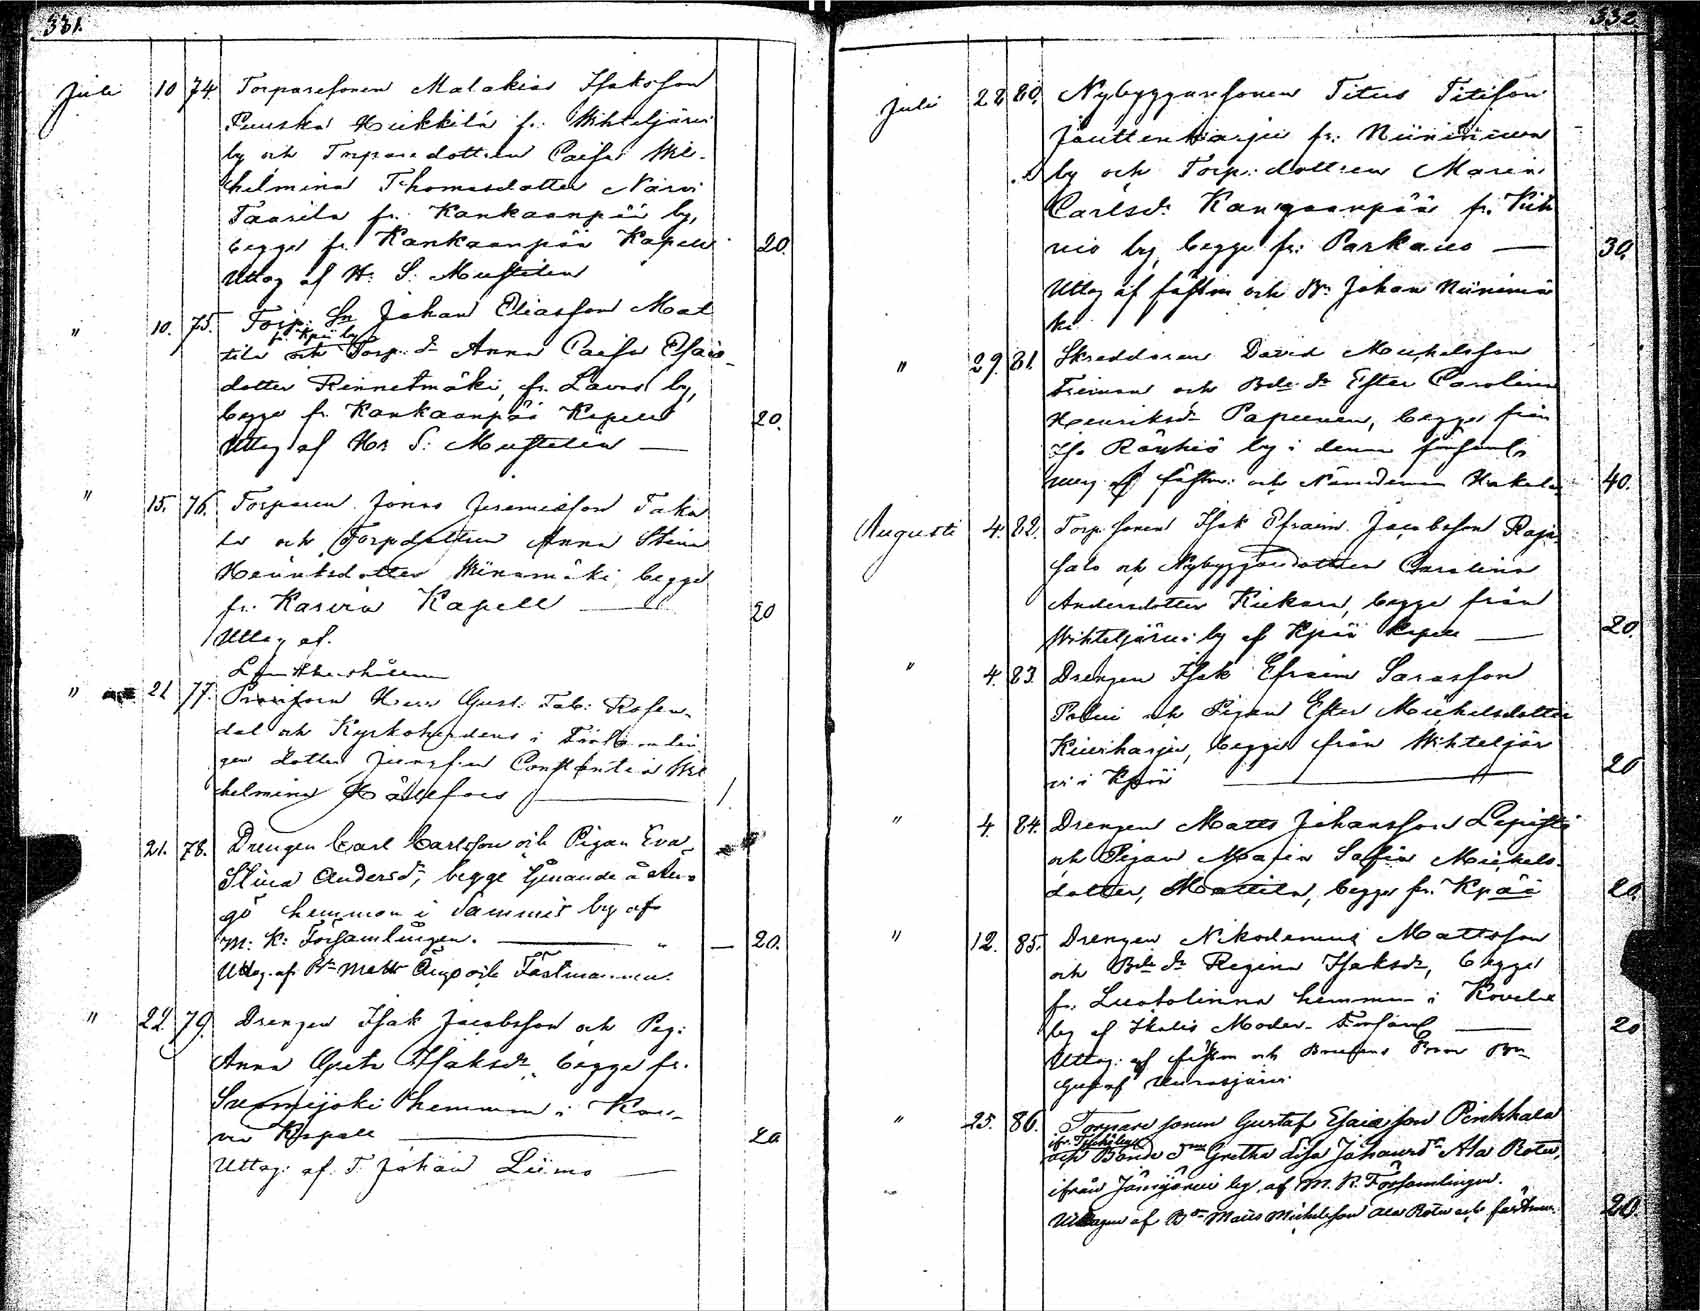 331.
Juli 10 74. Torparesonen Malakias Isaksson
Puuska Heikkilä fr. Wihteljärvi
by och Torparedottren Caisa Wil-
helmina Thomasdotter Närvi
Taarila fr. Kankaanpää by,
begge fr. Kankaanpää Kapell 20.
Uttag af H. S. Mustelin
" 10. 75. Torp: Sn Johan Eliasson Mat
fr. Kpää by
tila och Torp. dr Anna Caisa Esaie-
dotter Rinnetmäki, fr. Lavia by,
begge fr. Kankaanpää Kapell 20.
Uttag af Hr S. Mustelin —
" 15. 76. Torparen Jonas Jeremiesson Taka
la och Torpdottren Anna Stina
Henriksdotter Niinimäki, begge
fr. Karvia Kapell — 20
Uttag af.
" 21 77. Provisorn Herr Gust. Fab: Rosen-
dal och Kyrkoherdens i
gen dotter Jungfru Constantia Wil
helmina — /
21. 78. Drengen Carl Carlsson och Pigan Eva
Stina Andersdr, begge tjenande å
gö hemman i Sammis by af
M: K: Församlingen. — " — 20.
Uttag. af Bn Matts och Fästmannen.
" 22. 79. Drengen Isak Jacobsson och Pig:
Anna Greta Isaksdr, begge fr.
Suomijoki hemman i Kar-
via Kapell — 20
Uttag: af T. Johan Liimo —
332.
Juli 28 80. Nybyggaresonen Titus Titisson
Jouttenharju fr. Niinimuen
by och Torp: dottren Maria
Carlsdr Kangaanpää fr. Kih
niö by, begge fr. Parkano — 30.
Uttag af fästm och Bn Johan Niinimä
ki
" 29. 81. Skreddaren David Michelsson
Freiman och Bde dr Ester Carolina
Henriksdr Papunen, begge från
Röyhiö by i denna församl.
uttag. af fästm: och Nämndeman Hakala 40.
Augusti 4. 82. Torp. sonen Isak Efraim Jacobsson Raja
salo och Nybyggaredottren Carolina
Andersdotter Kiekara, begge från
Wihteljärvi by af Kpää kapell — 20.
" 4. 83. Drengen Isak Efraim Sarasson
och Pigan Ester Michelsdotter
Kiviharju, begge från Wihteljär
vi i Kpää — 20
" 4. 84. Drengen Matts Johansson Lepistö
och Pigan Maria Sofia Michels-
dotter, Mattila, begge fr. Kpää 20.
" 12. 85. Drengen Nikodemus Mattsson
och Bde dr Regina Isaksdr, begge
fr. Luotolinna hemman i Kovela
by af Ikalis Moder-Församl. — 20
Uttag: af fästm och Brudens Broder Bn
Gustaf Heinasjärvi
" 25. 86. Torparesonen Gustaf Esaiasson Pinkkala
och Bonde dren Gretha Lisa Johansdr Ala Rotu,
ifrån Jämijärvi by, af M. K. Församlingen.
Uttagen af Bn Matts Michelsson Ala Rotu och fästman. 20.